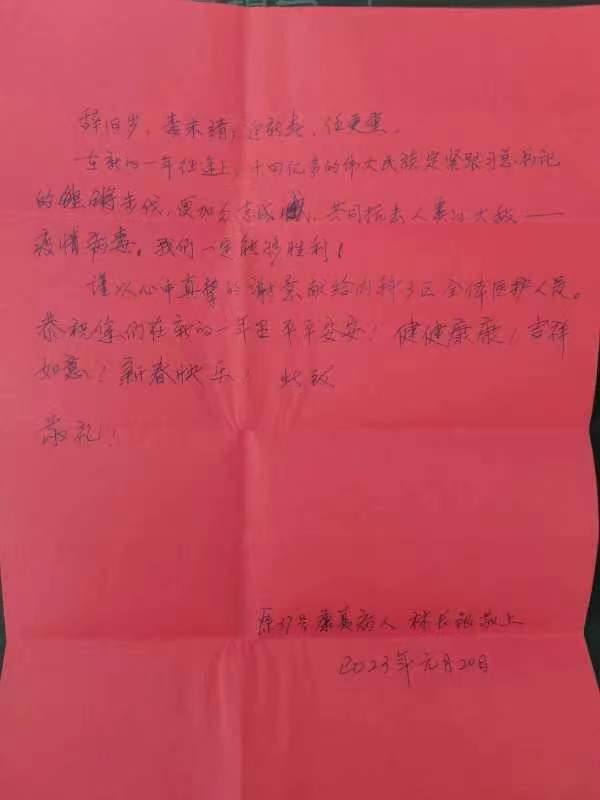 辞旧岁,春未靖;迎新春,任更重。
在新的一年征途上,十四亿多的伟大民族定紧跟习总书记
的铿锵步伐,更加众志成城,共同抗击人类的大敌——
疫情病毒。我们一定能够胜利!
谨以心中真挚的谢意献给内科3区全体医护人员。
恭祝您们在新的一年里平平安安!健健康康!吉祥
如意!新春快乐!此致
敬礼!
原37号康复病人 林长 敬上
2023年元月20日